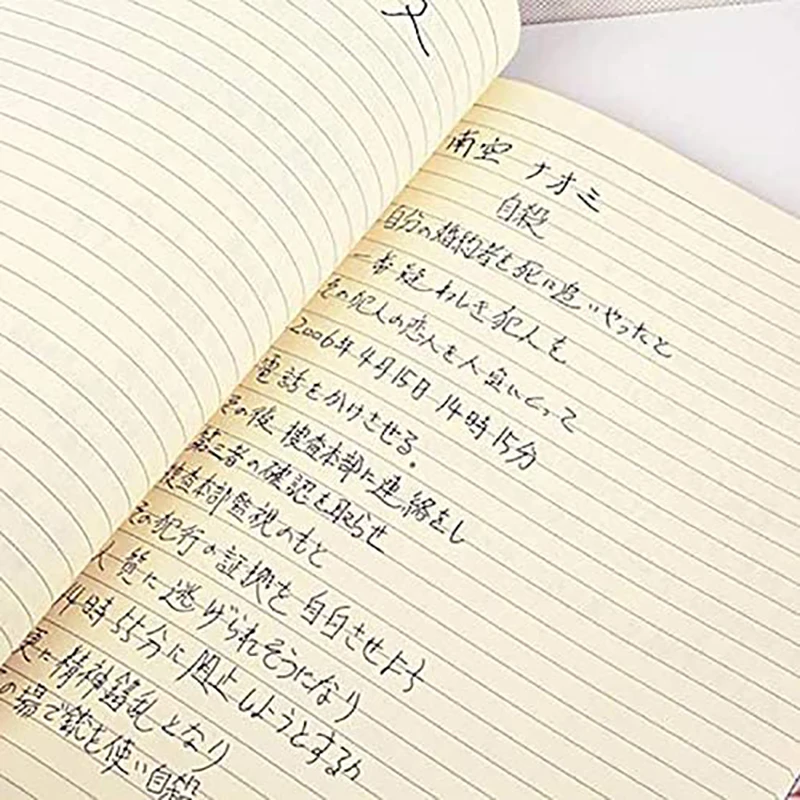 南空 ナオミ
自殺
自分の婚約者を死に追いやったと
一番疑わしき犯人を
その犯人の恋人を人質にとって
2006年4月15日 14時15分
電話をかけさせる。
その後 捜査本部に連絡をし
第三者の確認を取らせ
捜査本部監視のもと
その犯行の証拠を自白させようち
人質に逃げられそうになり
14時55分に阻止しようとするが
更に精神錯乱となり
の場で銃を使い自殺